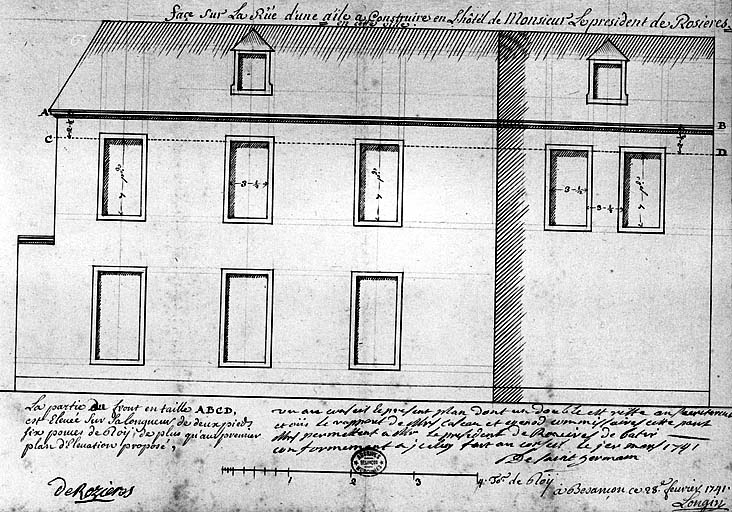 façe sur La Rüe d'une aîle a Construire en L'hôtel de Monsieur Le president de Rosieres.
en cette ville
A
B
C
D
2 ½
2 ½
7 pds
3 - ½
7 - pds
3 - ½
3 - ½
7 - pds
La partie du front en taille ABCD,
est Elevée Sur sa longueur de deux pieds
six pouces de 6loij; de plus qu'au premier
plan d'Elevation proposé;
DeRozieres
vu au conseil le present plan dont un double est resté au secretariat
et oüis le rapport de Mrs commissaires cette part
Mrs permettent a Mr Le president de Rosieres de batir
conformement a jceluy fait au conseil le jer mars 1741
De Saint germain
1
2
3
4 Tses de 6loij
à Besançon ce 28e feurier 1741.
Longin